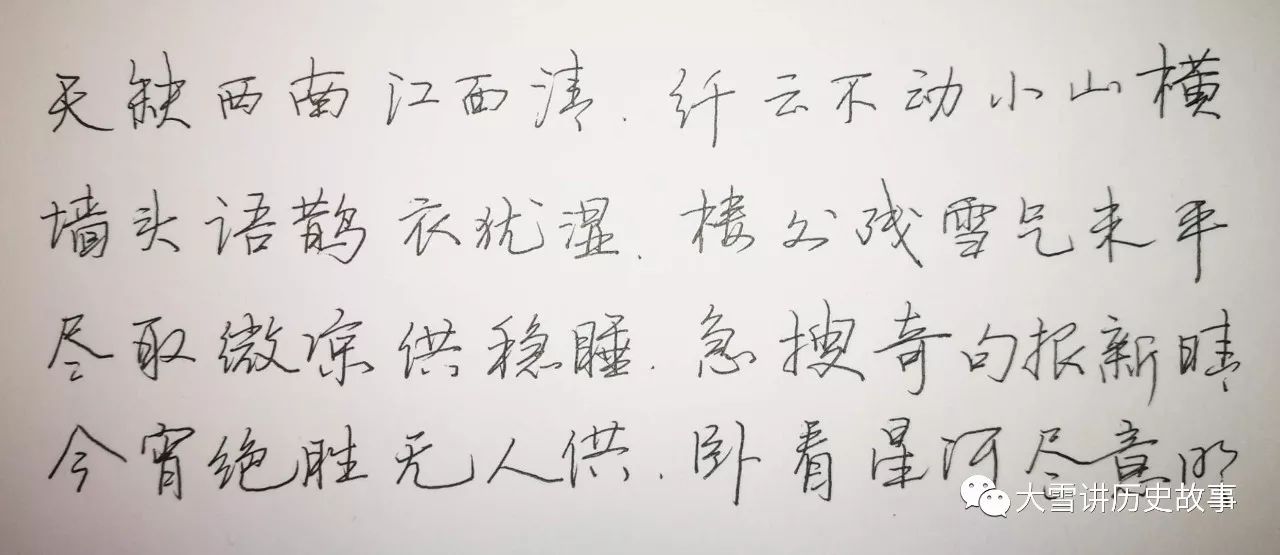 天缺西南江西清.纤云不动小山横
墙头语鹊衣犹湿.楼外残雪气未平
尽取微凉供稳睡.急搜奇句报新晴
今宵绝胜无人供.卧看星河尽意明
大雪讲历史故事